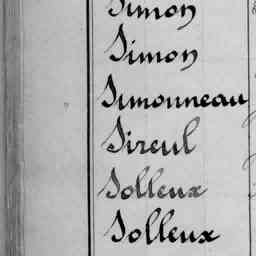 Simon
Simon
Simonneau
Sireul
Solleux
Solleux